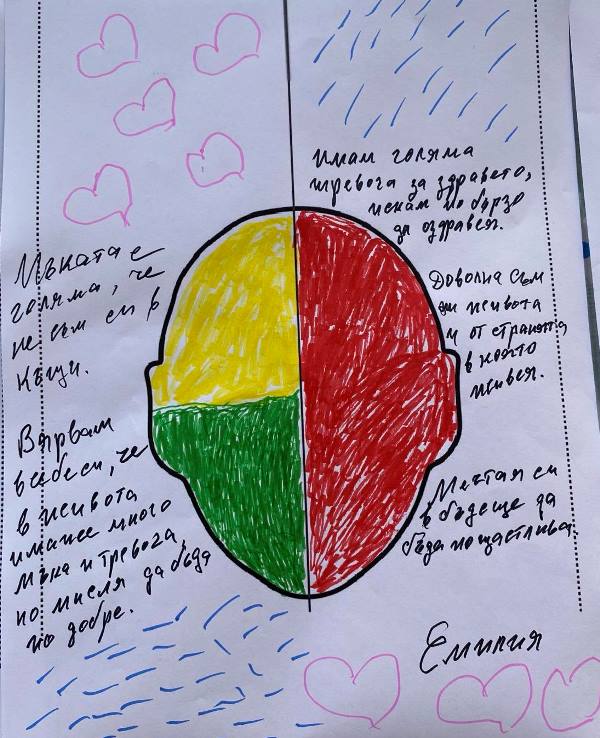 имам голяма
тревога за здравето,
искам по бързо
да оздравея.
Мъката е
голяма, че
не съм си в
къщи.
Доволна съм
от живота
и от страната
в която
живея.
Вярвам
в себе си, че
в живота
имаше много
мъка и тревога,
но мисля да бъда
по добре.
Мечтая си
в бъдеще да
бъда по щастлива.
Емилия